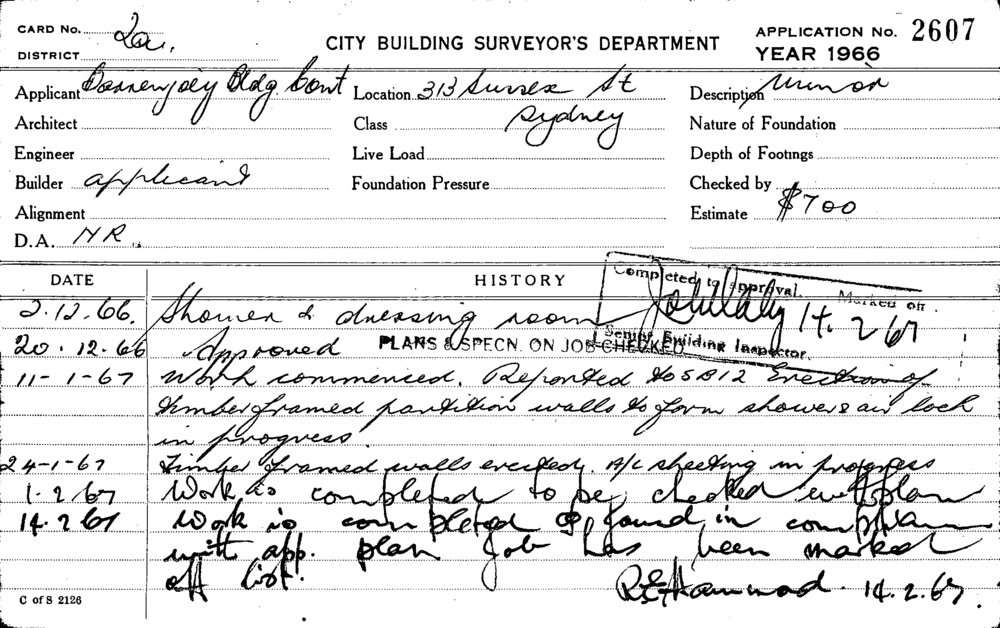 CARD No. 20a.
DISTRICT
CITY BUILDING SURVEYOR'S DEPARTMENT
APPLICATION No. 2607
YEAR 1966
Applicant Barrenjoey Bldg. Cont
Location 313 Sussex St
Sydney
Description Minor
Architect
Class
Nature of Foundation
Engineer
Live Load
Depth of Footings
Builder applicant
Foundation Pressure
Checked by
Alignment
Estimate $700
D.A. NR.
DATE
HISTORY
Completed to Approval. Marked off
14.2.67
Senior Building Inspector.
2.12.66. Shower & dressing room
20.12.66 Approved PLANS & SPECN. ON JOB CHECKED
11-1-67 Work commenced. Reported to SB12 Erection of
timber framed partition walls to form shower & air lock
in progress.
24-1-67 Timber framed walls erected. A/C sheeting in progress
1.2.67 Work is completed to be checked with plan
14.2.67 Work is completed & found in
with app. plan Job has been marked
off list.
14.2.67.
C of S 2126